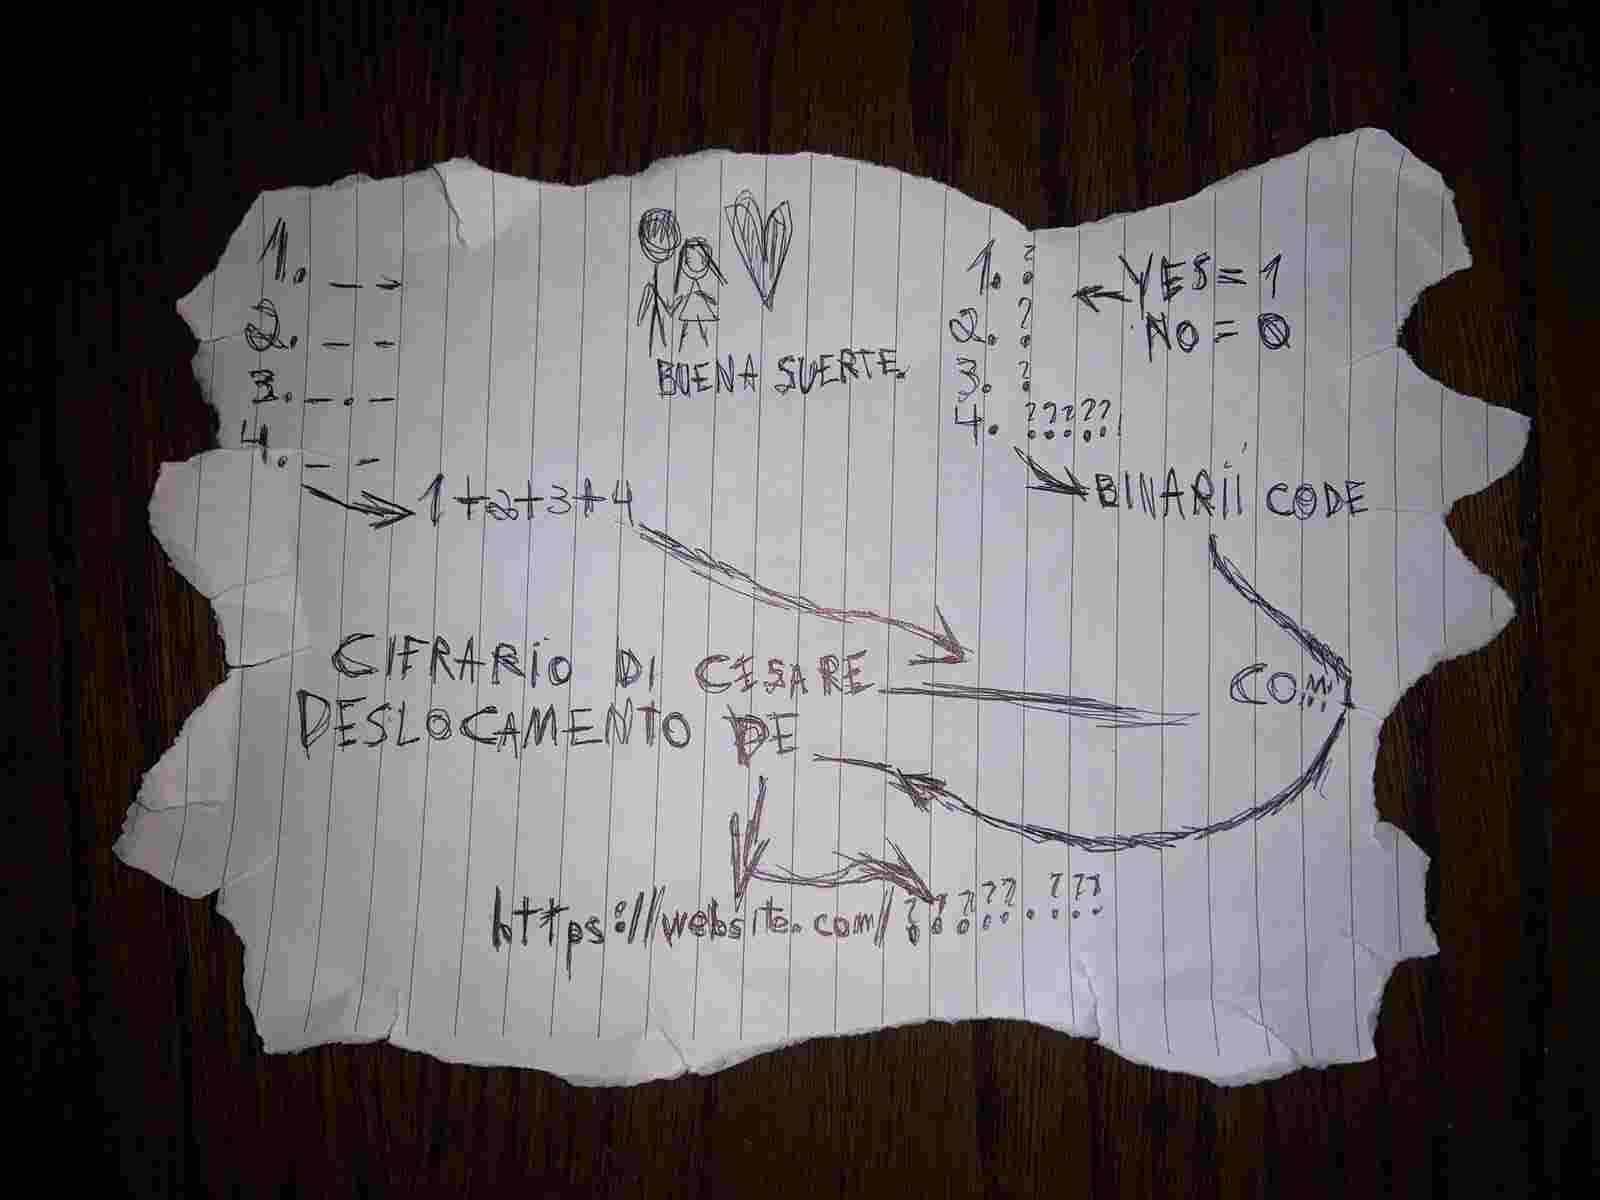 1. _ _
2. _ _
3. _ . _
4. _ _
1+2+3+4
BUENA SUERTE.
1. ?
2. ?
3. ?
4. ?????
YES = 1
NO = 0
BINARII CODE
CIFRARIO DI CESARE
COM
DESLOCAMENTO DE
https://website.com/?????.???